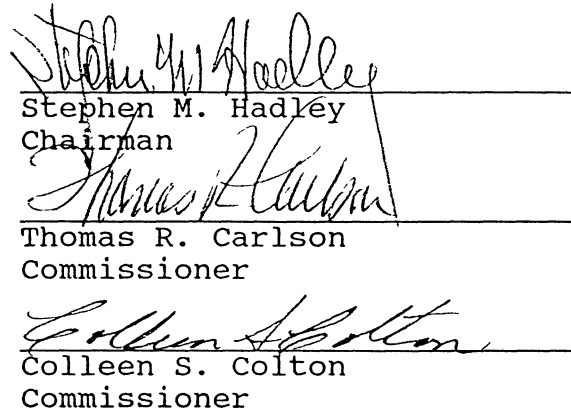 Stephen M Hadley
Stephen M. Hadley
Chairman
Thomas R Carlson
Thomas R. Carlson
Commissioner
Colleen S Colton
Colleen S. Colton
Commissioner